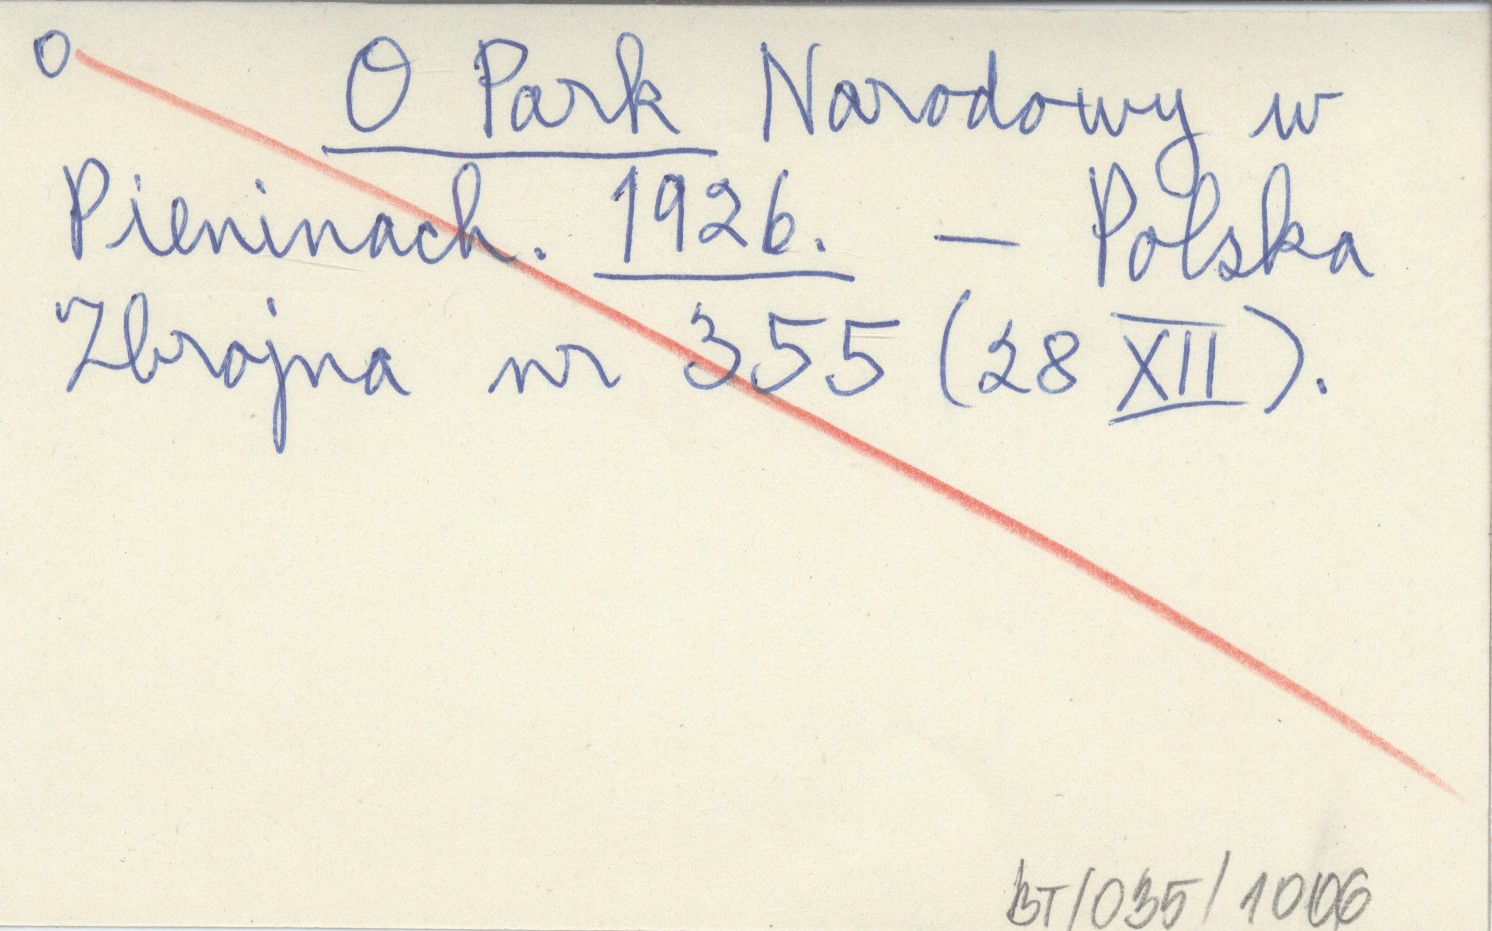 O
O Park Narodowy w
Pieninach. 1926. — Polska
Zbrojna nr 355 (28 XII).
BT/035/1006